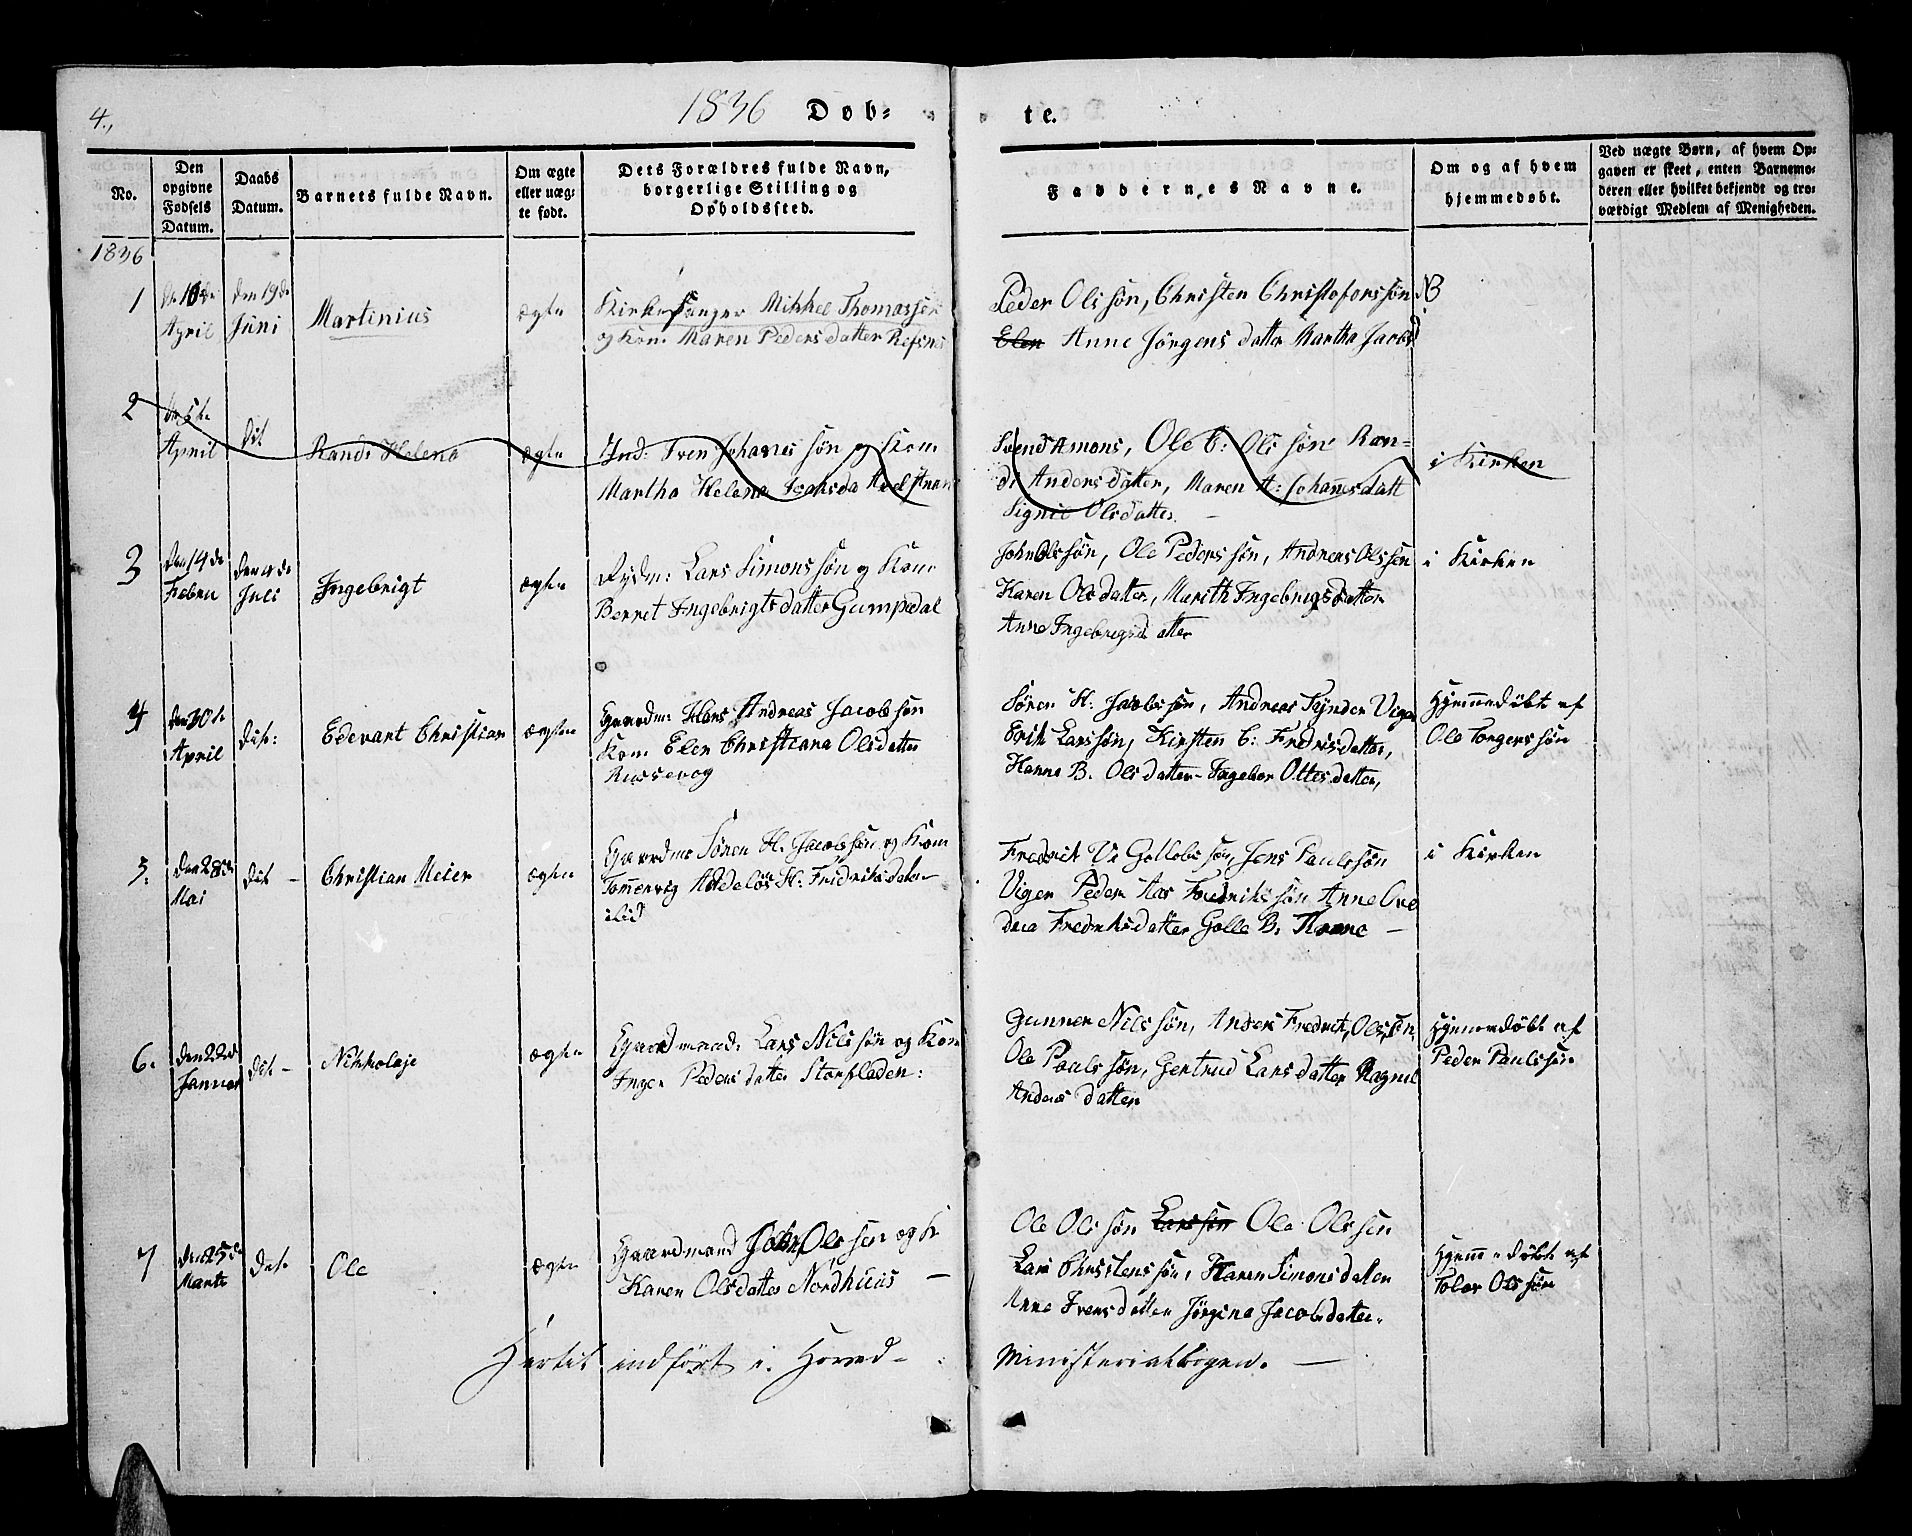 4.,
1836 Døb= te.
No.
Den opgivne Fødsels Datum.
Daabs Datum.
Barnets fulde Navn.
Om ægte eller uægte født.
Dets Forældres fulde Navn, borgerlige Stilling og Opholdssted.
Faddernes Navne.
Om og af hvem hjemmedøbt.
Ved uægte Børn, af hvem Op=
gaven er skeet, enten Barnemo=
deren eller hvilket bekjendt og tro=
værdigt Medlem af Menigheden.
1836
1
April
den 19de
Juni
Martinius
ægte
Kirkesanger Mikkel Thomassen
og Kon. Maren Pedersdatter Refsnes
Peder Olssøn, Christen Christofersøn
Elen Anne Jørgensdatter Martha Jacobsd
2
April
dit
Randi Helena
ægte
Ind: Iven Johanessøn og Kon.
Martha Helena
Svend Amons, Ole C: Olssøn Ran=
di Andersdatter, Maren A: Johanesdatt
Signil Olsdatter
i Kirken
3
den 14de
Febru
Juli
Ingebrigt
ægte
Rydn: Lars Simonssøn og Kon.
Berret Ingebrigtsdatter Gumpedal
John Olssøn, Ole Pederssøn, Andreas Olssøn
Karen Olsdatter, Marith Ingebrigsdatter
Anne Ingebrigsdatter
i Kirken
4
den 30te
April
dit:
Edevart Christian
ægte
Gaardm: Hans Andreas Jacobsøn
Kon. Elen Christiana Olsdatter
Russevog
Søren H. Jacobssøn, Andreas
Erik Larssøn, Kirsten C: Fredrisdatter,
Hanna B. Olsdatter- Ingebor Ottesdatter,
Hjemmedøbt af
Ole Torgerssøn
5.
den 28de
Mai
dit -
Christian Meier
ægte
Søren H. Jacobssøn og Kon
Tommervig H: Fridriksdater
Fredrik Jens Paulssøn
Vigen Peder Aas Fredrikssøn Anne
Fredriksdatter Golle B.
i Kirken
6.
den 22de
Januar
dit -
Nikkolaje
ægte
Gaardmand: Lars Nilssøn og Kon
Inger Pedersdatter Storfladen:
Gunner Nilssøn, Anders Fredrik Olssøn,
Ole Paulssøn, Gertrud Larsdatter Ragnil
Andersdatter
Hjemmedøbt af
Peder Paulssøn
7
den 25de
Marts
dit.
Ole
ægte
Gaardmand John Olssen og K
Karen Olsdatter Nordhuus -
Ole Olssøn Larssøn Ole Olssen
Lars Christenssøn, Karen Simonsdaten
Anne Ivensdatter Jørgina Jacobsdatter.
Hjemmedøbt af
Tolar Olssøn
Hertil indført i Hoved-
Ministerialbogen. -